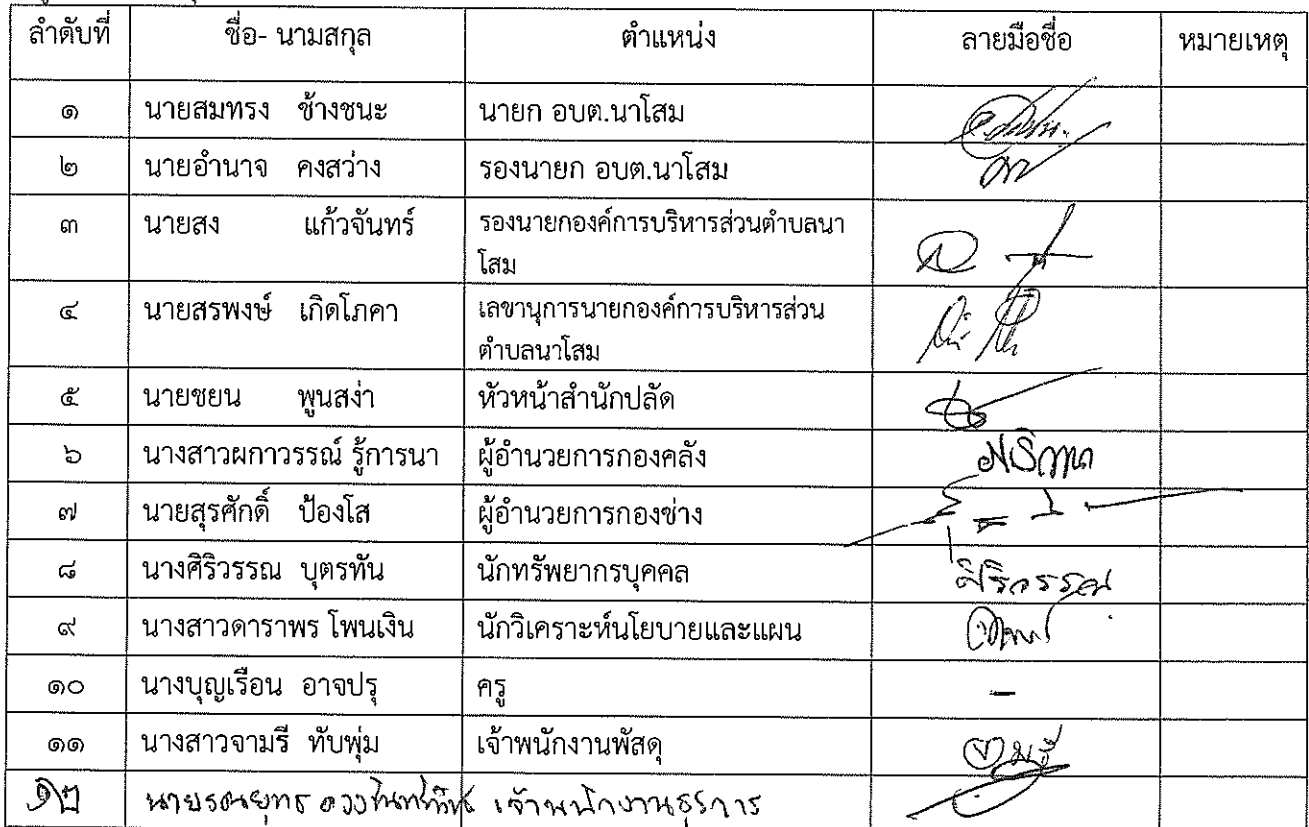 ลำดับที่ ชื่อ- นามสกุล ตำแหน่ง ลายมือชื่อ หมายเหตุ
๑ นายสมทรง ช้างชนะ นายก อบต.นาโสม
๒ นายอำนาจ คงสว่าง รองนายก อบต.นาโสม
๓ นายสง แก้วจันทร์ รองนายกองค์การบริหารส่วนตำบลนา
โสม
๔ นายสรพงษ์ เกิดโภคา เลขานุการนายกองค์การบริหารส่วน
ตำบลนาโสม
๕ นายชยน พูนสง่า หัวหน้าสำนักปลัด
๖ นางสาวผกาวรรณ์ รู้การนา ผู้อำนวยการกองคลัง
๗ นายสุรศักดิ์ ป้องโส ผู้อำนวยการกองช่าง
๘ นางศิริวรรณ บุตรทัน นักทรัพยากรบุคคล ศิริวรรณ
๙ นางสาวดาราพร โพนเงิน นักวิเคราะห์นโยบายและแผน
๑๐ นางบุญเรือน อาจปรุ ครู -
๑๑ นางสาวจามรี ทับพุ่ม เจ้าพนักงานพัสดุ
๑๒ นายรณยุทธ เจ้าพนักงานธุรการ